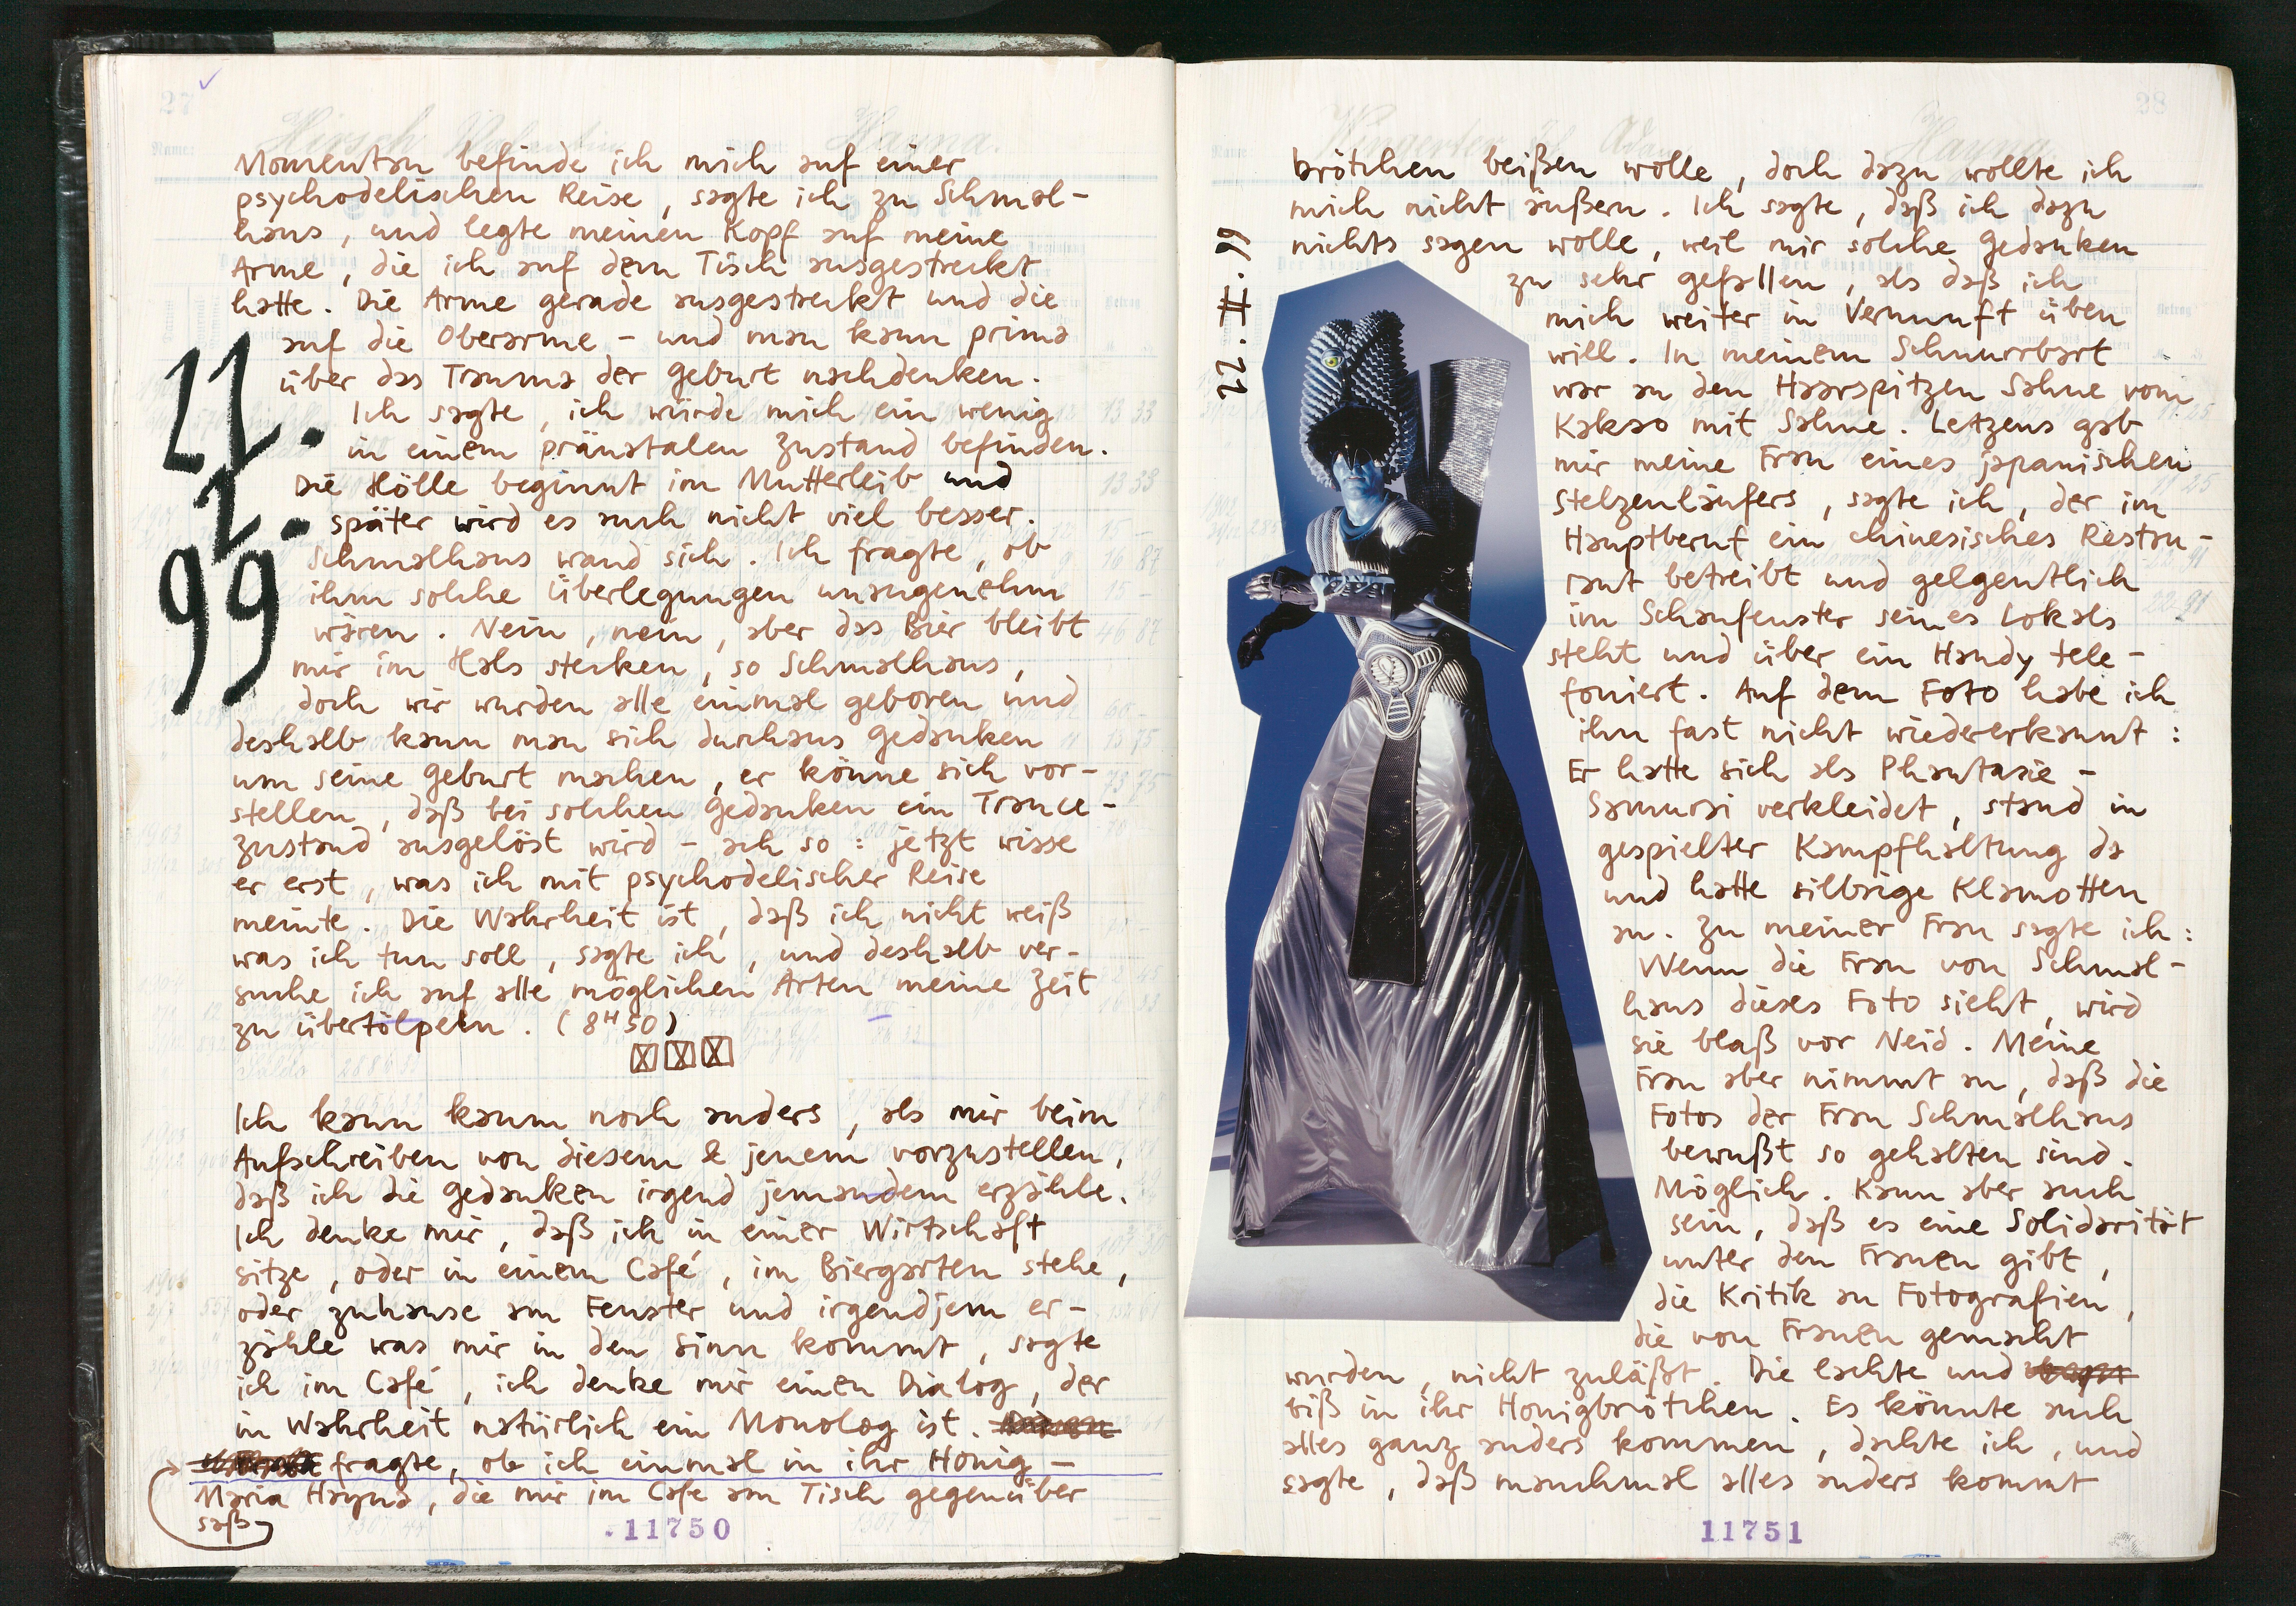 Momentan befinde ich mich auf einer
psychodelischen Reise, sagte ich zu Schmal-
haus, und legte meinen Kopf auf meine
Arme, die ich auf dem Tisch ausgestreckt
hatte. Die Arme gerade ausgestreckt und die
auf die Oberarme - und man kann prima
über das Trauma der Geburt nachdenken.
Ich sagte, ich würde mich ein wenig
in einem pränatalen Zustand befinden.
Die Hölle beginnt im Mutterleib und
später wird es auch nicht viel besser.
Schmalhaus wand sich. Ich fragte, ob
ihm solche Überlegungen unangenehm
wären. Nein, nein, aber das Bier bleibt
mir im Hals stecken, so Schmalhaus,
doch wir wurden alle einmal geboren und
deshalb kann man sich durchaus Gedanken
um seine Geburt machen, er könne sich vor-
stellen, daß bei solchen Gedanken ein Trance-
zustand ausgelöst wird - ach so: jetzt wisse
er erst, was ich mit psychodelischer Reise
meinte. Die Wahrheit ist, daß ich nicht weiß
was ich tun soll, sagte ich, und deshalb ver-
suche ich auf alle möglichen Arten meine Zeit
zu übertölpeln. (8H50)
22.
2.
99
Ich kann kaum noch anders, als mir beim
Aufschreiben von diesem & jenem vorzustellen,
daß ich die Gedanken irgend jemandem erzähle.
Ich denke mir, daß ich in einer Wirtschaft
sitze, oder in einem Café, im Biergarten stehe,
oder zuhause am Fenster und irgendjem er-
zähle was mir in den Sinn kommt, sagte
ich im Café, ich denke mir einen Dialog, der
in Wahrheit natürlich ein Monolog ist.
fragte, ob ich einmal in ihr Honig-
Maria Hayna, die mir im Cafe am Tisch gegenüber
saß
11750
22.II.99
brötchen beißen wolle, doch dazu wollte ich
mich nicht äußern. Ich sagte, daß ich dazu
nichts sagen wolle, weil mir solche Gedanken
zu sehr gefallen, als daß ich
mich weiter in Vernunft üben
will. In meinem Schnurrbart
war an den Haarspitzen Sahne vom
Kakao mit Sahne. Letzens gab
mir meine Frau eines japanischen
Stelzenläufers, sagte ich, der im
Hauptberuf ein chinesisches Restau-
rant betreibt und gelgentlich
im Schaufenster seines Lokals
steht und über ein Handy tele-
foniert. Auf dem Foto habe ich
ihn fast nicht wiedererkannt:
Er hatte sich als Phantasie-
Samurai verkleidet, stand in
gespielter Kampfhaltung da
und hatte silbrige Klamotten
an. Zu meiner Frau sagte ich:
Wenn die Frau von Schmal-
haus dieses Foto sieht, wird
sie blaß vor Neid. Meine
Frau aber nimmt an, daß die
Fotos der Frau Schmalhaus
bewußt so gehalten sind.
Möglich. Kann aber auch
sein, daß es eine Solidarität
unter den Frauen gibt,
die Kritik an Fotografien,
die von Frauen gemacht
wurden, nicht zuläßt. Die lachte und
biß in ihr Honigbrötchen. Es könnte auch
alles ganz anders kommen, dachte ich, und
sagte, daß manchmal alles anders kommt
11751